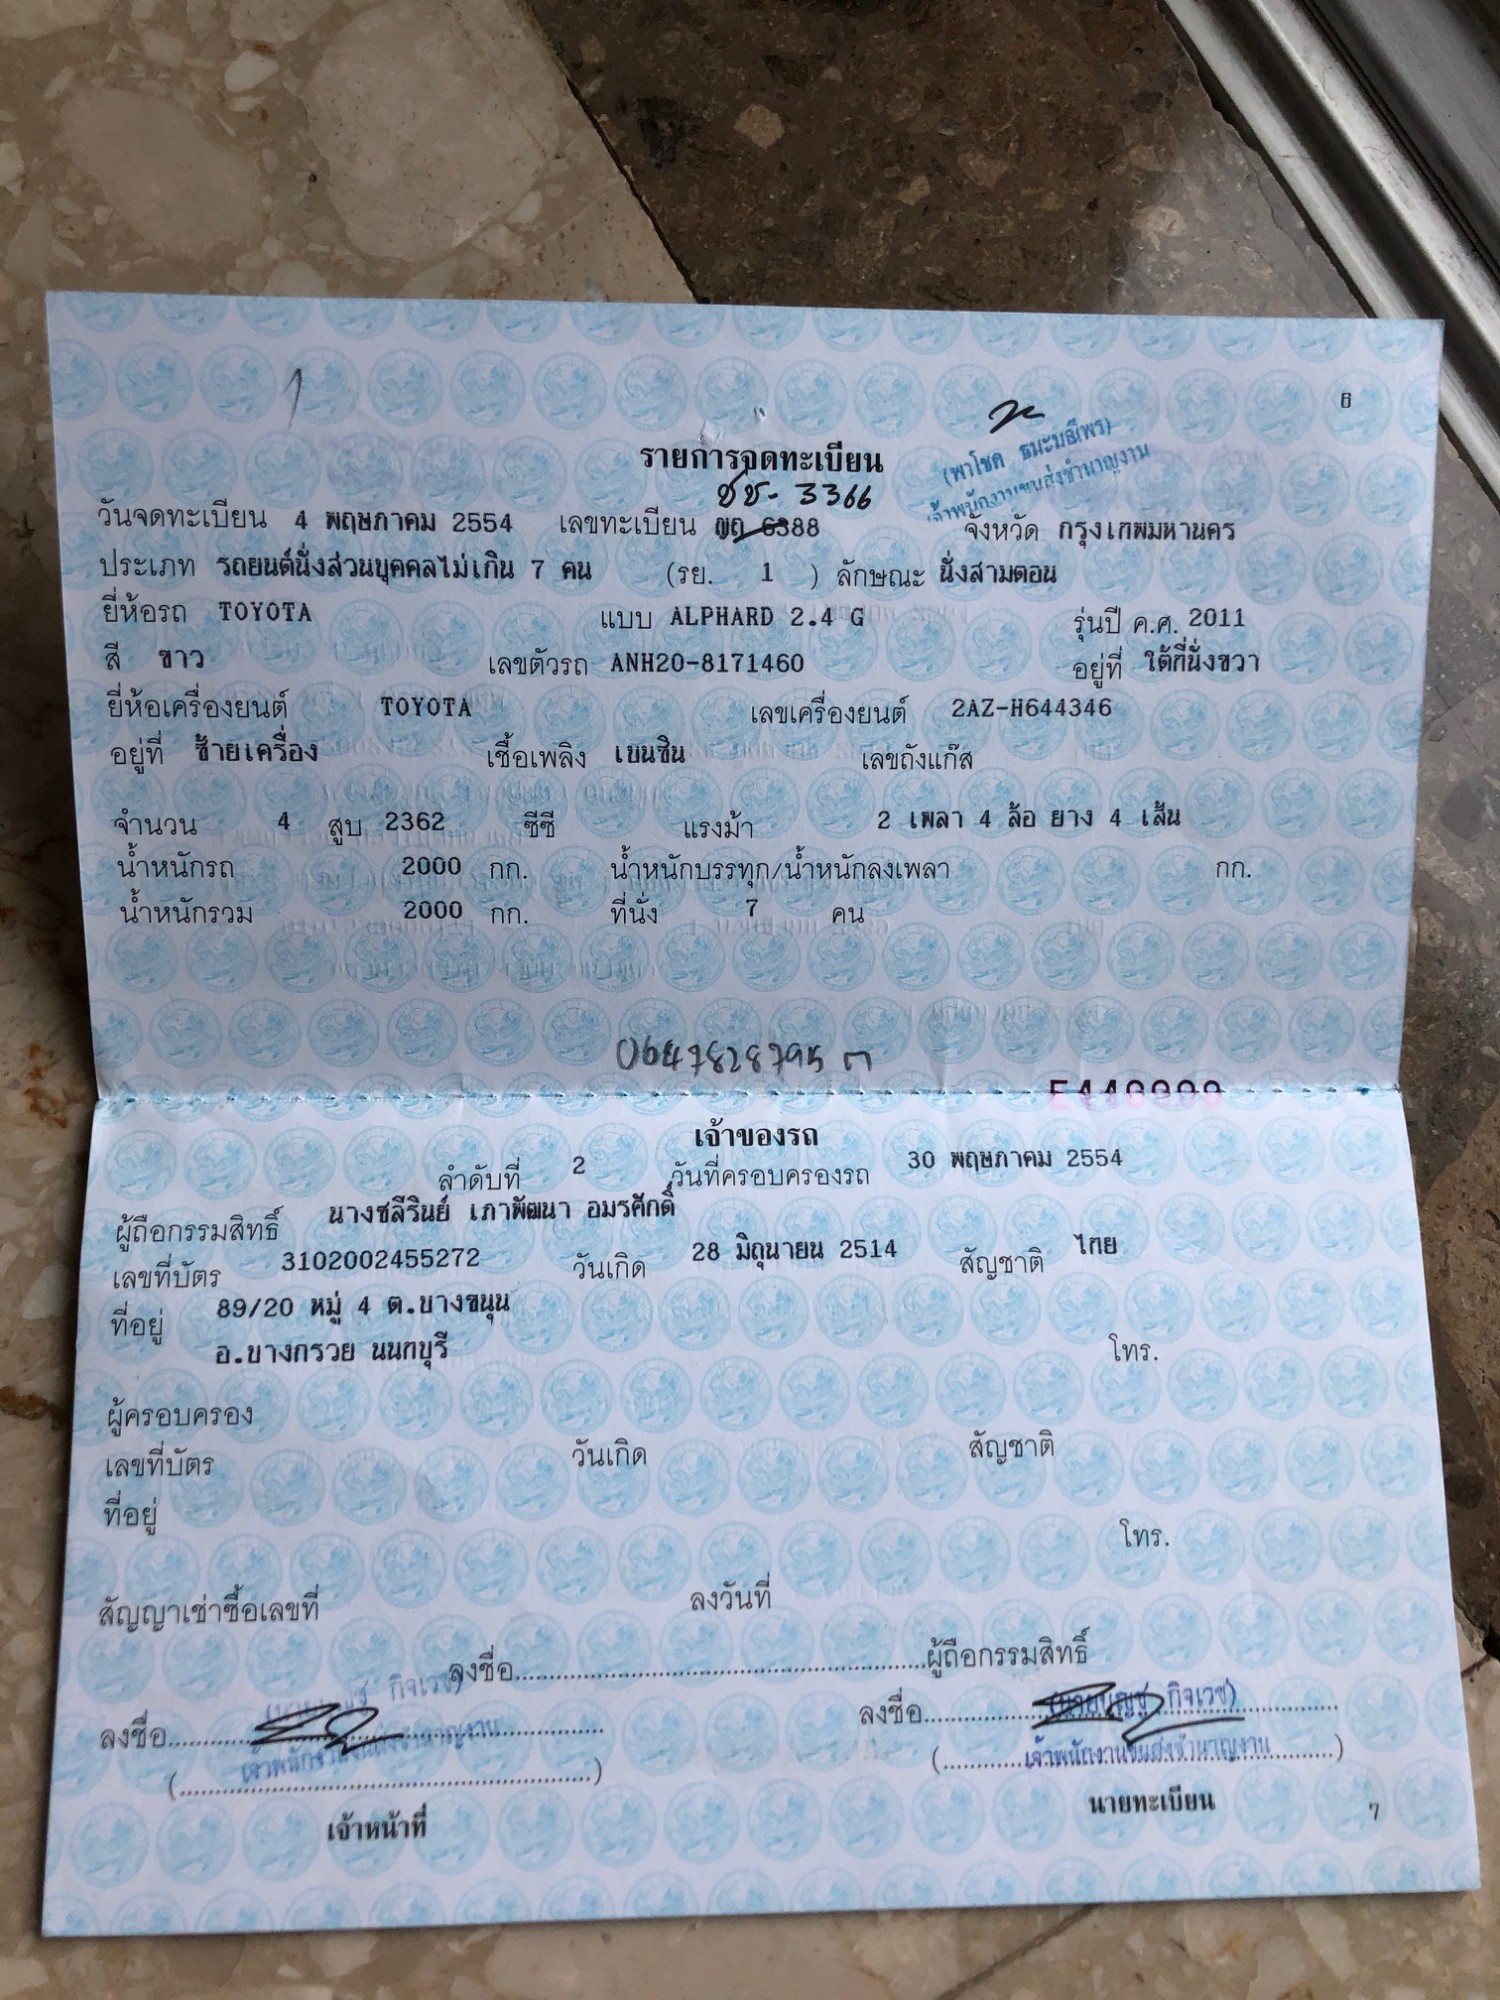 6
รายการจดทะเบียน
ชช- 3366
วันจดทะเบียน 4 พฤษภาคม 2554 เลขทะเบียน ญฎ 6388 จังหวัด กรุงเทพมหานคร
เจ้าพนักงานขนส่งชำนาญงาน
ประเภท รถยนต์นั่งส่วนบุคคลไม่เกิน 7 คน (รย. 1 ) ลักษณะ นั่งสามตอน
ยี่ห้อรถ TOYOTA แบบ ALPHARD 2.4 G รุ่นปี ค.ศ. 2011
สี ขาว เลขตัวรถ ANH20-8171460 อยู่ที่ ใต้ที่นั่งขวา
ยี่ห้อเครื่องยนต์ TOYOTA เลขเครื่องยนต์ 2AZ-H644346
อยู่ที่ ซ้ายเครื่อง เชื้อเพลิง เบนซิน เลขถังแก๊ส
จำนวน 4 สูบ 2362 ซีซี แรงม้า 2 เพลา 4 ล้อ ยาง 4 เส้น
น้ำหนักรถ 2000 กก. น้ำหนักบรรทุก/น้ำหนักลงเพลา กก.
น้ำหนักรวม 2000 กก. ที่นั่ง 7 คน
0647828795
เจ้าของรถ
ลำดับที่ 2 วันที่ครอบครองรถ 30 พฤษภาคม 2554
ผู้ถือกรรมสิทธิ์ นางชลีรินย์ เภาพัฒนา อมรศักดิ์
เลขที่บัตร 3102002455272 วันเกิด 28 มิถุนายน 2514 สัญชาติ ไทย
ที่อยู่ 89/20 หมู่ 4 ต.บางขนุน
อ.บางกรวย นนทบุรี โทร.
ผู้ครอบครอง
เลขที่บัตร วันเกิด สัญชาติ
ที่อยู่
โทร.
สัญญาเช่าซื้อเลขที่ ลงวันที่
ลงชื่อ ผู้ถือกรรมสิทธิ์
ลงชื่อ ลงชื่อ
เจ้าพนักงานขนส่งชำนาญงาน เจ้าพนักงานขนส่งชำนาญงาน
เจ้าหน้าที่ นายทะเบียน
7